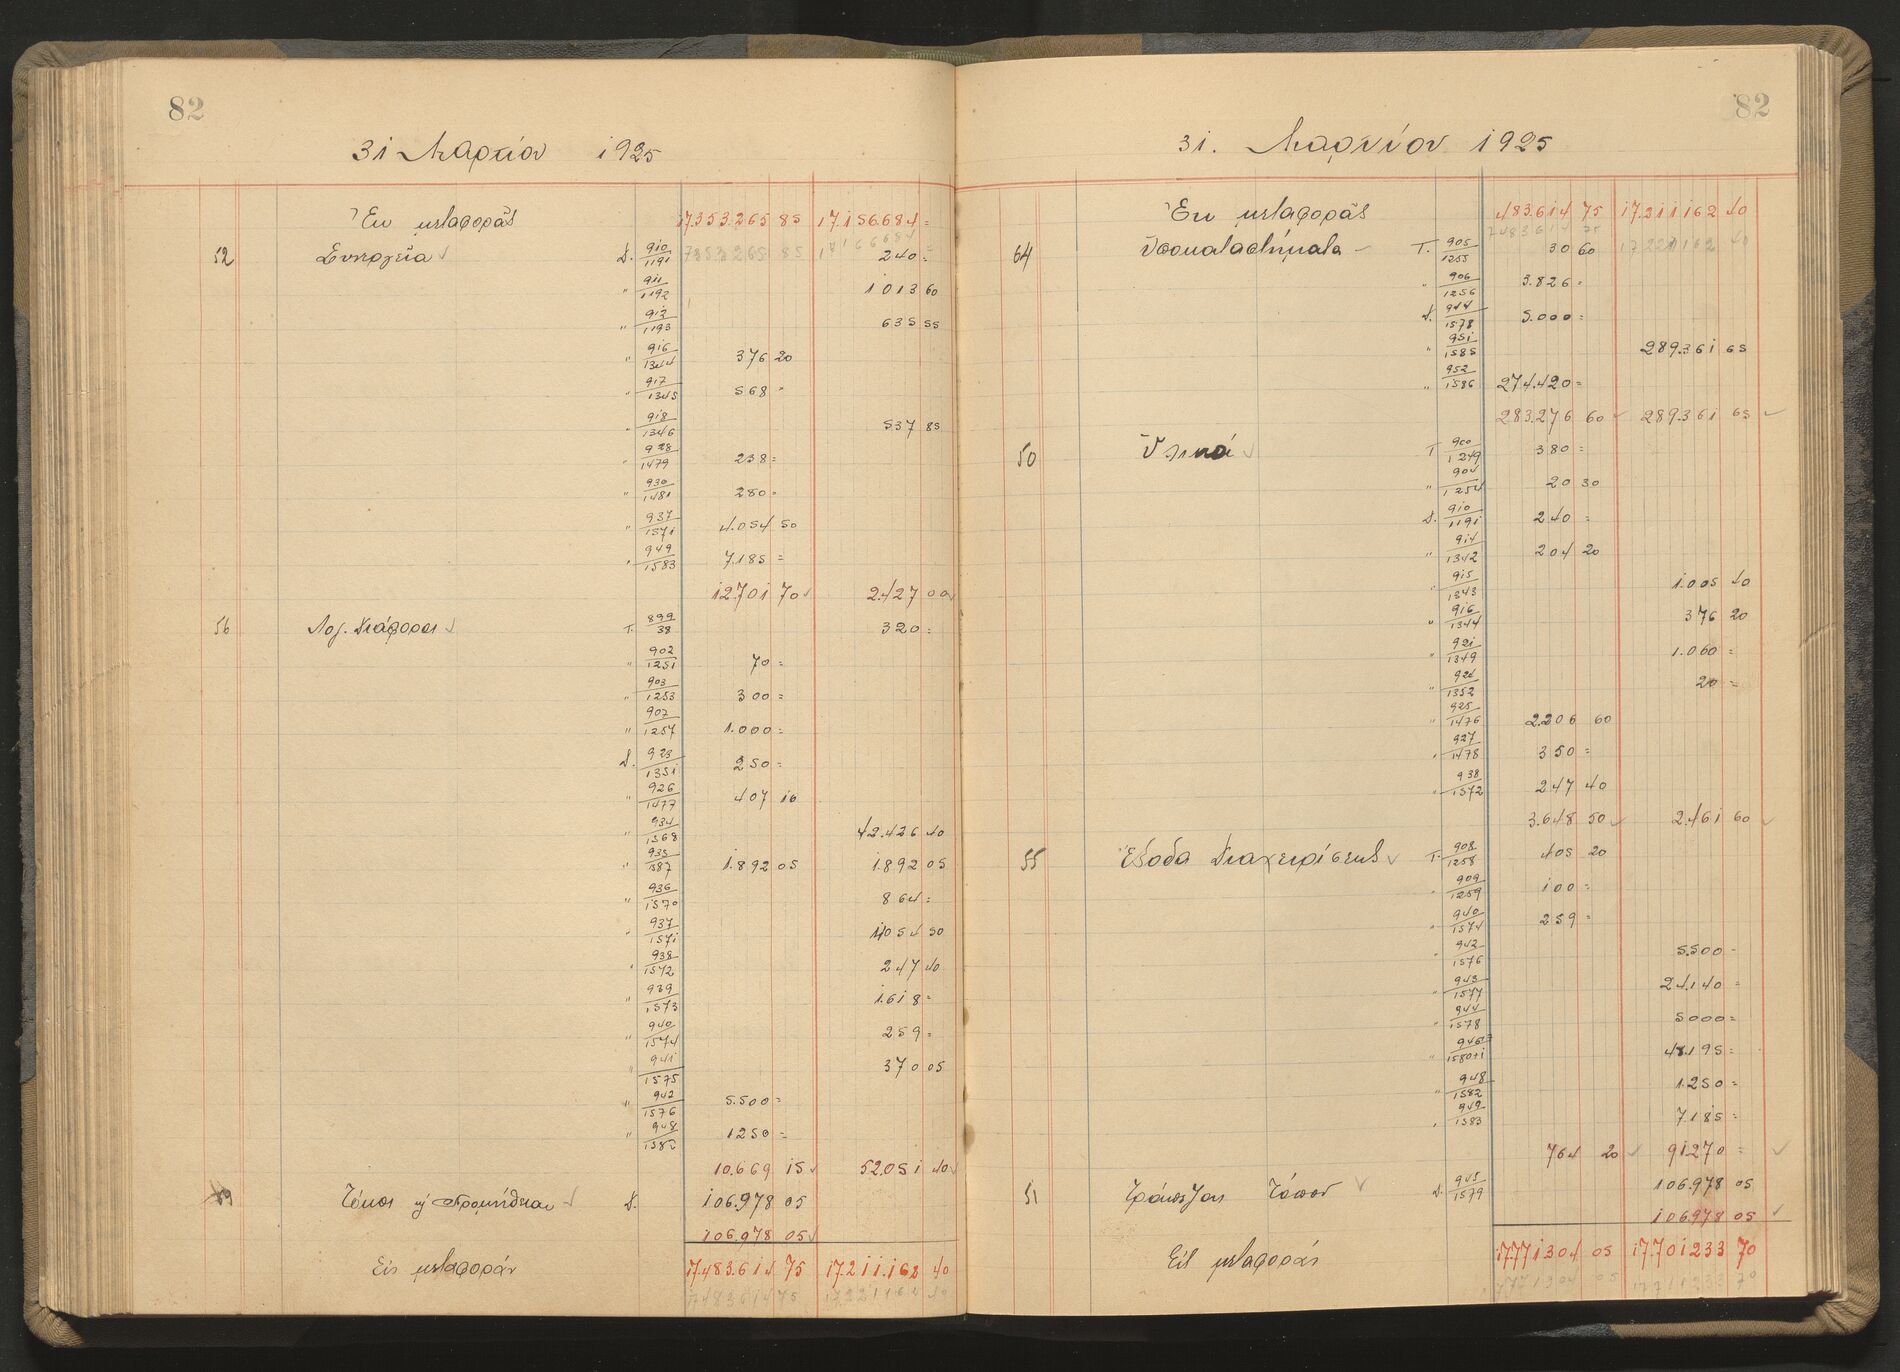 82
31 Μαρτίου 1925
Ἐκ μεταφορᾶς 17.353.265 85 17.156.684 =
52 Συνεργεῖα Δ. 910/1191 240 =
" 911/1192 1013 60
" 912/1193 635 55
" 916/1344 376 20
" 917/1345 568 "
" 918/1346 537 85
" 928/1479 238 =
" 930/1481 280 =
" 937/1571 4.054 50
" 949/1583 7.185 =
12.701 70 2.427 00
56 Λογ. Διάφοροι Τ. 899/38 320 =
" 902/1251 70 =
" 903/1253 300 =
" 907/1257 1.000 =
Δ. 923/1351 250 =
" 926/1477 407 10
" 934/1568 42.426 40
" 935/587 1.892 05 1.892 05
" 936/1570 864 =
" 937/1571 4054 50
" 938/1572 247 40
" 939/1573 1.618 =
" 940/1574 259 =
" 941/1575 370 05
" 942/1576 5.500 =
" 948/1582 1250 =
10.669 15 52.051 40
Τόκοι ἢ Προμήθειαι Δ. 106.978 05
106.978 05
Εἰς μεταφοράν 17.483.614 75 17.211.162 40
17483614 75 17.221162 40
82
31. Μαρτίου 1925
Ἐκ μεταφορᾶς 483.614 75 17.211.162 40
64 Ὑποκαταστήματα Τ. 905/1255 30 60
" 906/1256 3.826 =
Δ. 944/1578 5.000 =
" 951/1585 289.361 65
" 952/1586 274.420 =
283.276 60 289.361 65
50 Ὑλικά Τ 900/1249 380 =
" 904/1254 20 30
Δ. 910/1191 240 =
" 914/1342 204 20
" 915/1343 1.005 40
" 916/1344 376 20
" 921/1349 1.060 =
" 924/1352 20 =
" 925/1476 2.206 60
" 927/1478 350 =
" 938/1572 247 40
3.648 50 2.461 60
55 Ἔξοδα Διαχειρίσεως Τ. 908/1258 405 20
" 909/1259 100 =
" 940/1574 259 =
" 942/1576 5.500 =
" 943/1577 24.140 =
" 944/1578 5000 =
" 946/1580+1 48.195 =
" 948/1582 1.250 =
" 949/1583 7.185 =
764 20 91.270 =
51 Τράπεζαι Τόκου Δ. 945/1579 106.978 05
106.978 05
Εἰς μεταφοράν 17.771304 05 17.701233 70
17771304 05 17711233 70